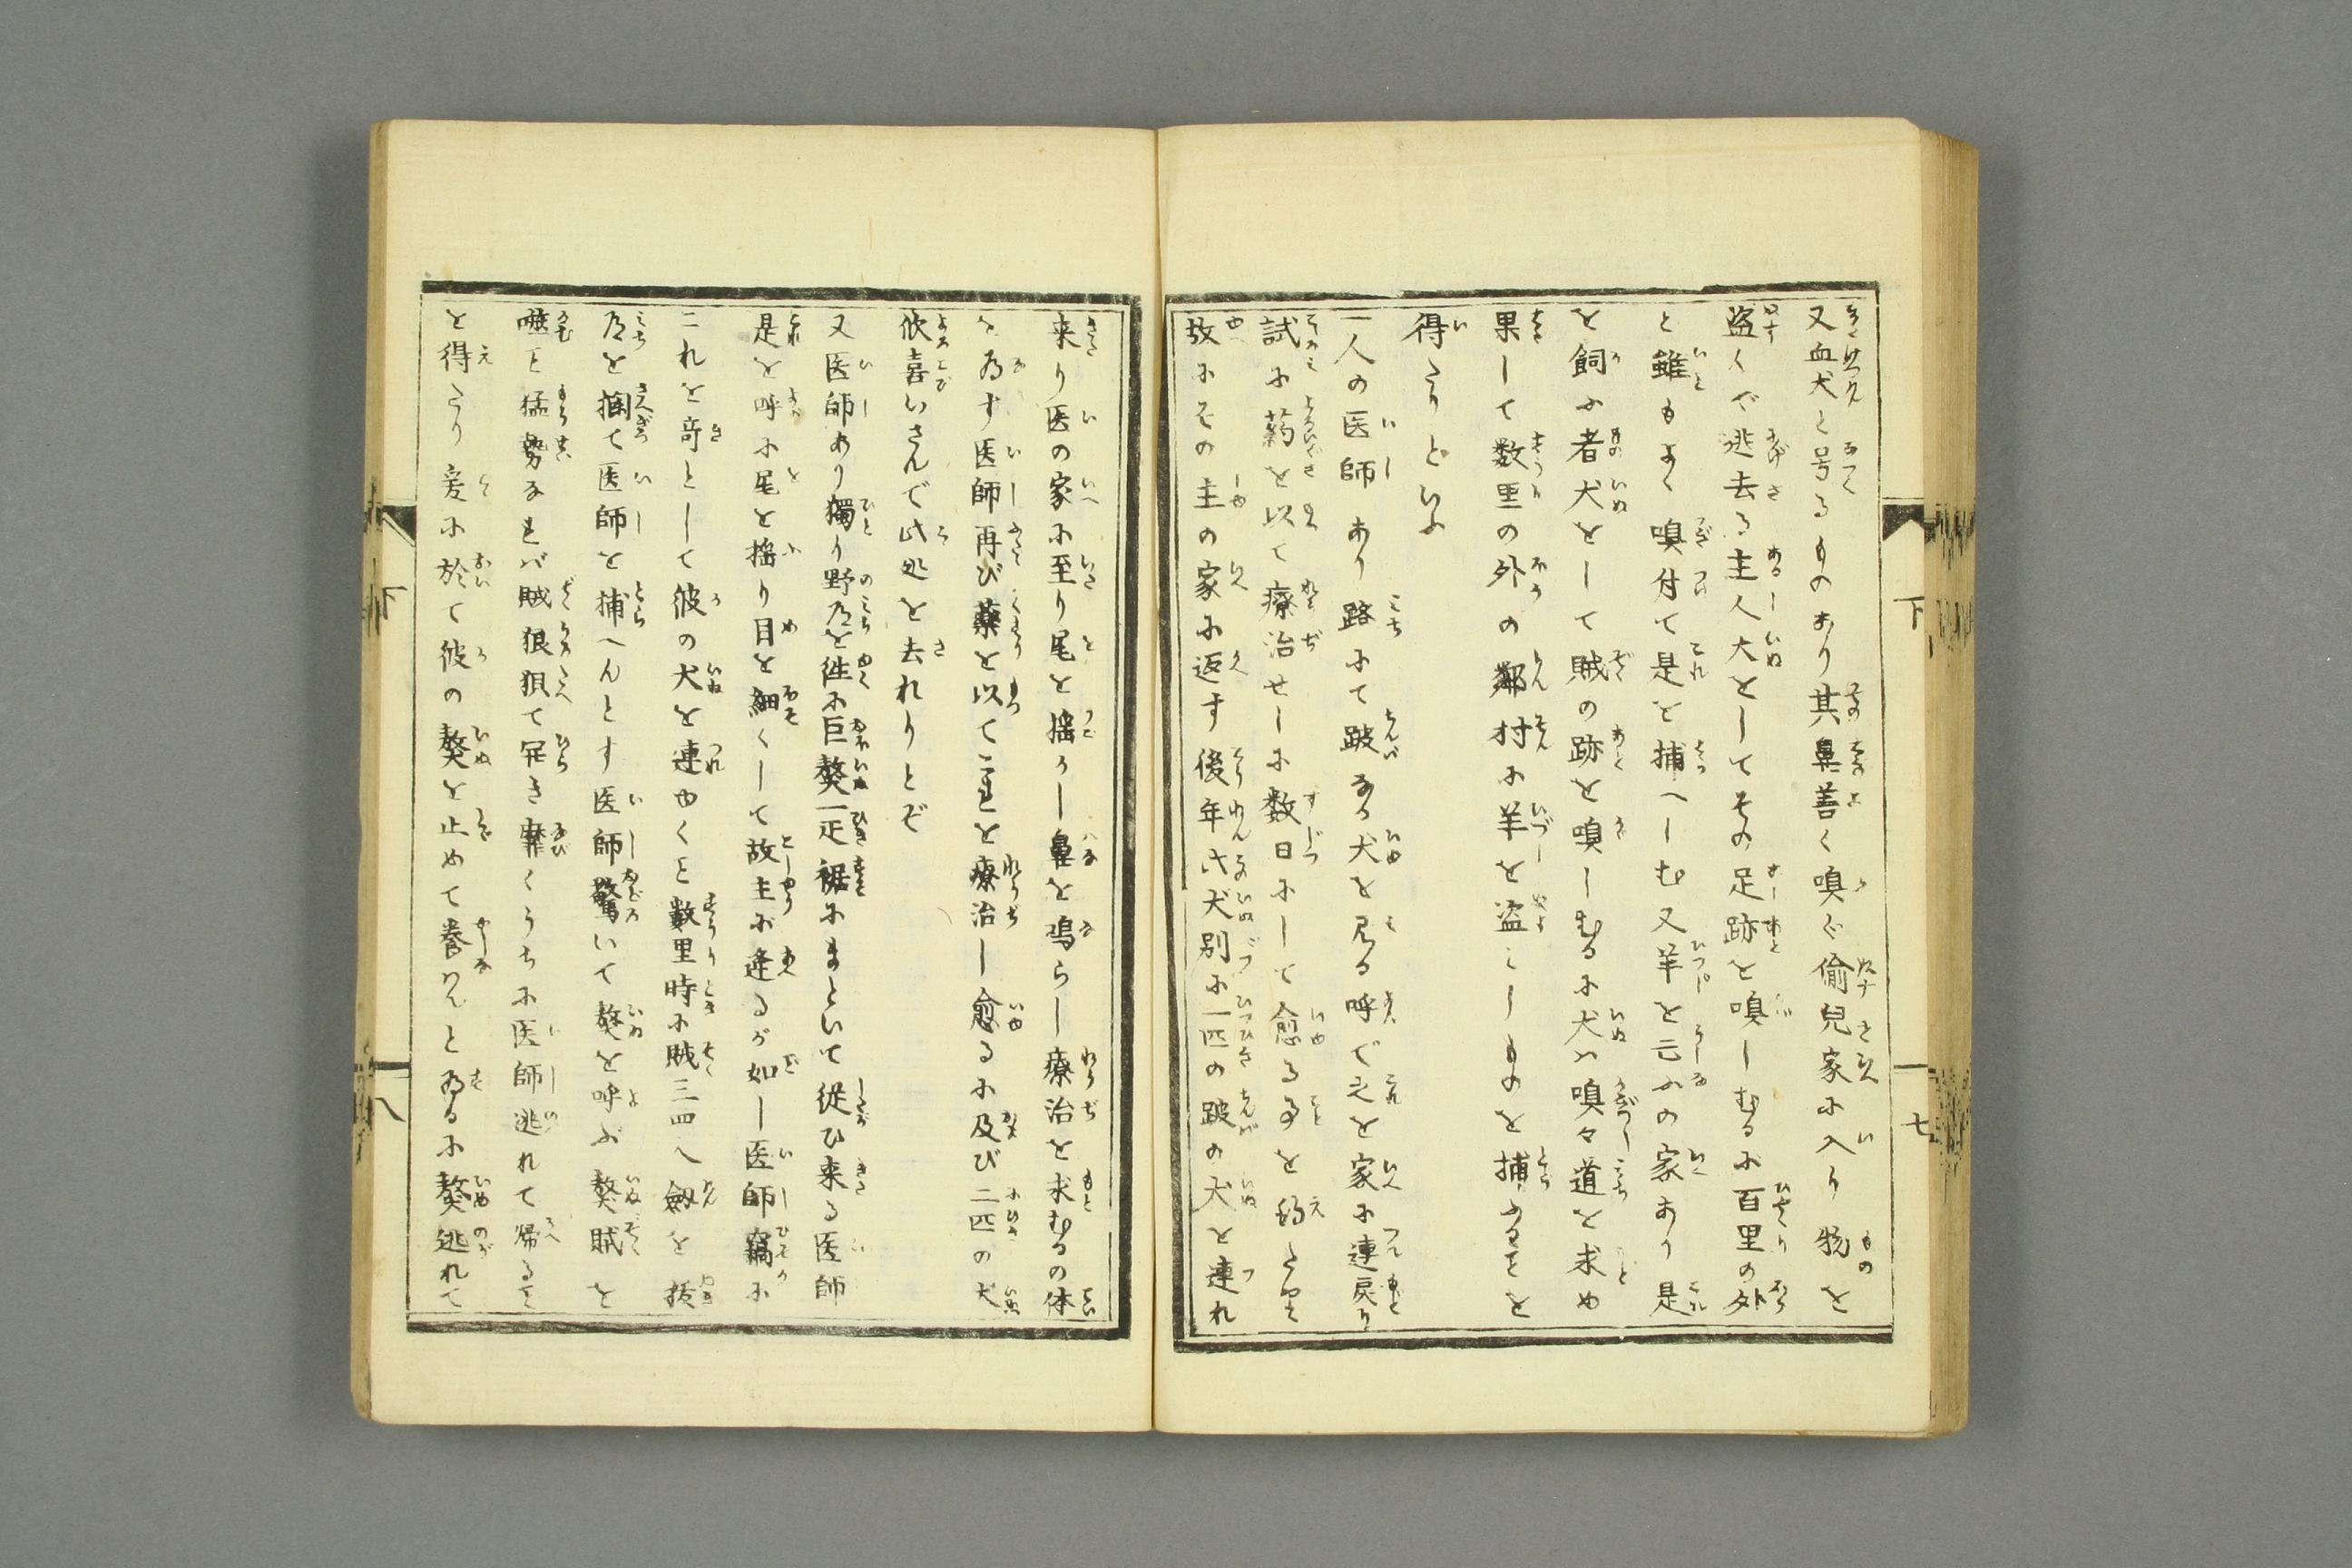 又血犬と号るものあり其鼻善く嗅ぐ偷兒家に入り物を
盗くで逃去る主人犬をしてその足跡を嗅しむるに百里の外
と雖もよく嗅付て是を捕へしむ又羊を云ふの家あり是
を飼ふ者犬をして賊の跡を嗅しむるに犬ハ嗅々道を求め
果して数里の外の鄰村に羊を盗こしものを捕ふることを
得たりといふ
一人の医師あり路にて跛なる犬を見る呼で之を家に連戻り
試に薬を以て療治せしに数日にして愈る事を得たり
故にその主の家に返す後年此犬別に一匹の跛の犬を連れ
来り医の家に至り尾を揺かし鼻を鳴らし療治を求むるの体
を為す医師再び薬を以てこれを療治し愈るに及び二匹の犬
欣喜いさんで此処を去れりとぞ
又医師あり獨り野道を徃に巨獒一疋裾にまといて従ひ来る医師
是を呼に尾を揺り目を細くして故主に逢るが如し医師竊に
これを奇として彼の犬を連ゆくこと数里時に賊三四人劔を抜
道を攔て医師を捕へんとす医師驚いて獒を呼ぶ獒賊を
噬こと猛勢なれバ賊狼狽て开き靡くうちに医師逃れて帰ること
を得たり爰に於て彼の獒を止めて養ハんと為るに獒逃れて
下
七
下
八